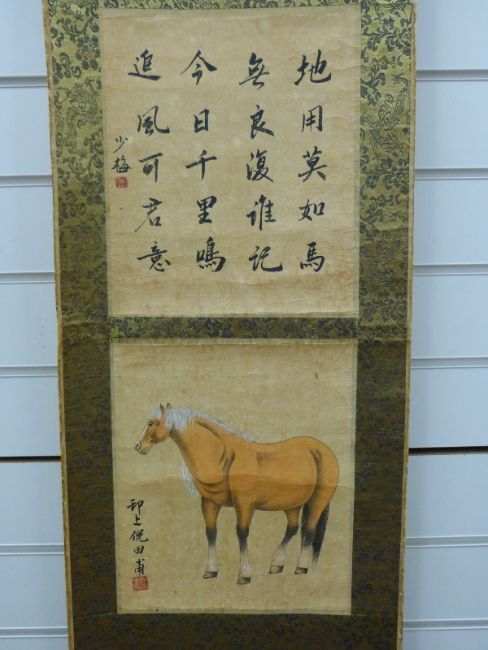 地用莫如馬
無良復誰記
今日千里鳴
追風可君意
少梅
邗上倪田甫